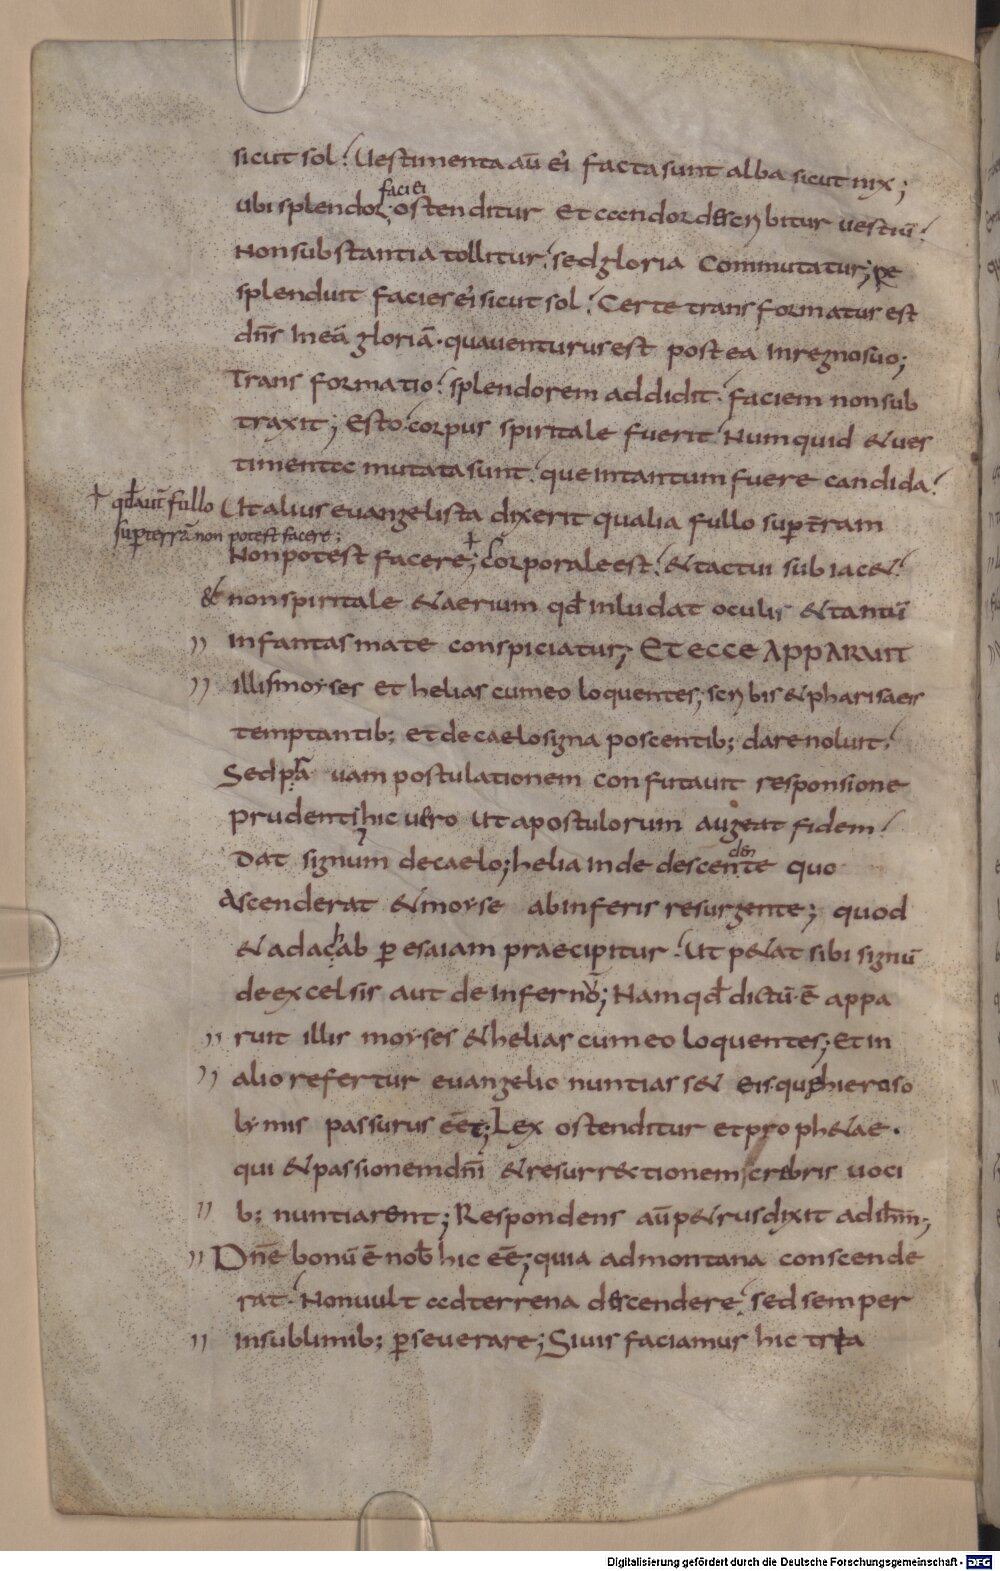 sicut sol; Uestimenta aū ei facta sunt alba sicut nix;
faciei
ubi splendor ostenditur et candor describitur uestiū;
Non substantia tollitur sed gloria commutatur; Re
splenduit facies ei sicut sol; Certe transformatus est
dn̄s in eā gloriā · qua uenturus est postea in regno suo;
Transformatio splendorem addidit · faciem non sub
traxit; Esto corpus spiritale fuerit Numquid & ues
timenta mutata sunt que in tantum fuere candida;
✝ qđ aut̄ fullo
Ut alius euangelista dixerit qualia fullo sup t̄ram
sup terrā non potest facere;
Non potest facere; ✝ corporale est & tactui subiac&;
& non spiritale & aerium qđ inludat oculis & tantū
,, in fantasmate conspiciatur; ET ECCE APPARUIT
,, illis moyses et helias cum eo loquentes; scribis & pharisaeis
temptantib; et de caelo signa poscentib; dare noluit;
Sed prauam postulationem confutauit responsione
prudenti hic uero Ut apostulorum augeat fidem;
den
Dat signum de caelo; helia inde descente quo
Ascenderat & moyse ab inferis resurgente; quod
& ad achab p esaiam praecipitur · Ut p&at sibi signū
de excelsis aut de inferno; Nam qđ dictū · ē appa
,, ruit illis moyses & helias cum eo loquentes; Et in
,, alio refertur euangelio nuntiass& eis que hieroso
lymis passurus eēt; Lex ostenditur et proph&ae ·
qui & passionem dn̄i & resurr&tionem crebris uoci
,, b; nuntiarent; Respondens aū p&rus dixit ad ih̄m;
,, Dn̄e bonū ē nob̄ hic eē; quia ad montana conscende
rat · Non uult ad terrena descendere sed semper
,, in sublimib; p seuerare; Si uis faciamus hic tria
Digitalisierung gefördert durch die Deutsche Forschungsgemeinschaft - DFG